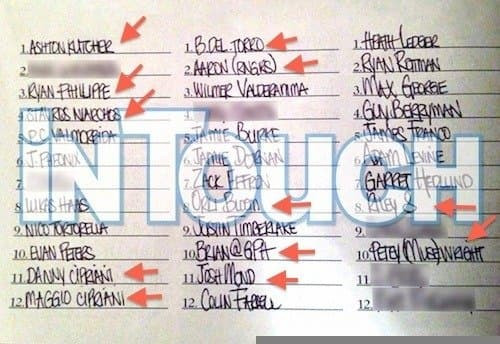 1. ASHTON KUTCHER
2.
3. RYAN PHILIPPE
4. STAVROS NIARCHOS
5. P.C. VALMORBIDA
6. J.
7.
8. LUKAS HAAS
9. NICO TORTORELLA
10. EVAN PETERS
11. DANNY CIPRIANI
12. MAGGIO CIPRIANI
1. B. DEL TORRO
2. AARON
3. WILMER VALDERAMA
4.
5. JAMIE BURKE
6. JAMIE DORNAN
7. ZACK EFFRON
8. ORLI BLOOM
9. JUSTIN TIMBERLAKE
10. BRIAN@GPA
11. JOSH
12. COLIN FARRELL
1. HEATH LEDGER
2. RYAN ROTTMAN
3. MAX GEORGE
4. GUY BERRYMAN
5. JAMES FRANCO
6. ADAM LEVINE
7. GARRET HEDLUND
8. RILEY S
9.
10. PETEY (MUSE) WRIGHT
11.
12.
INTOUCH